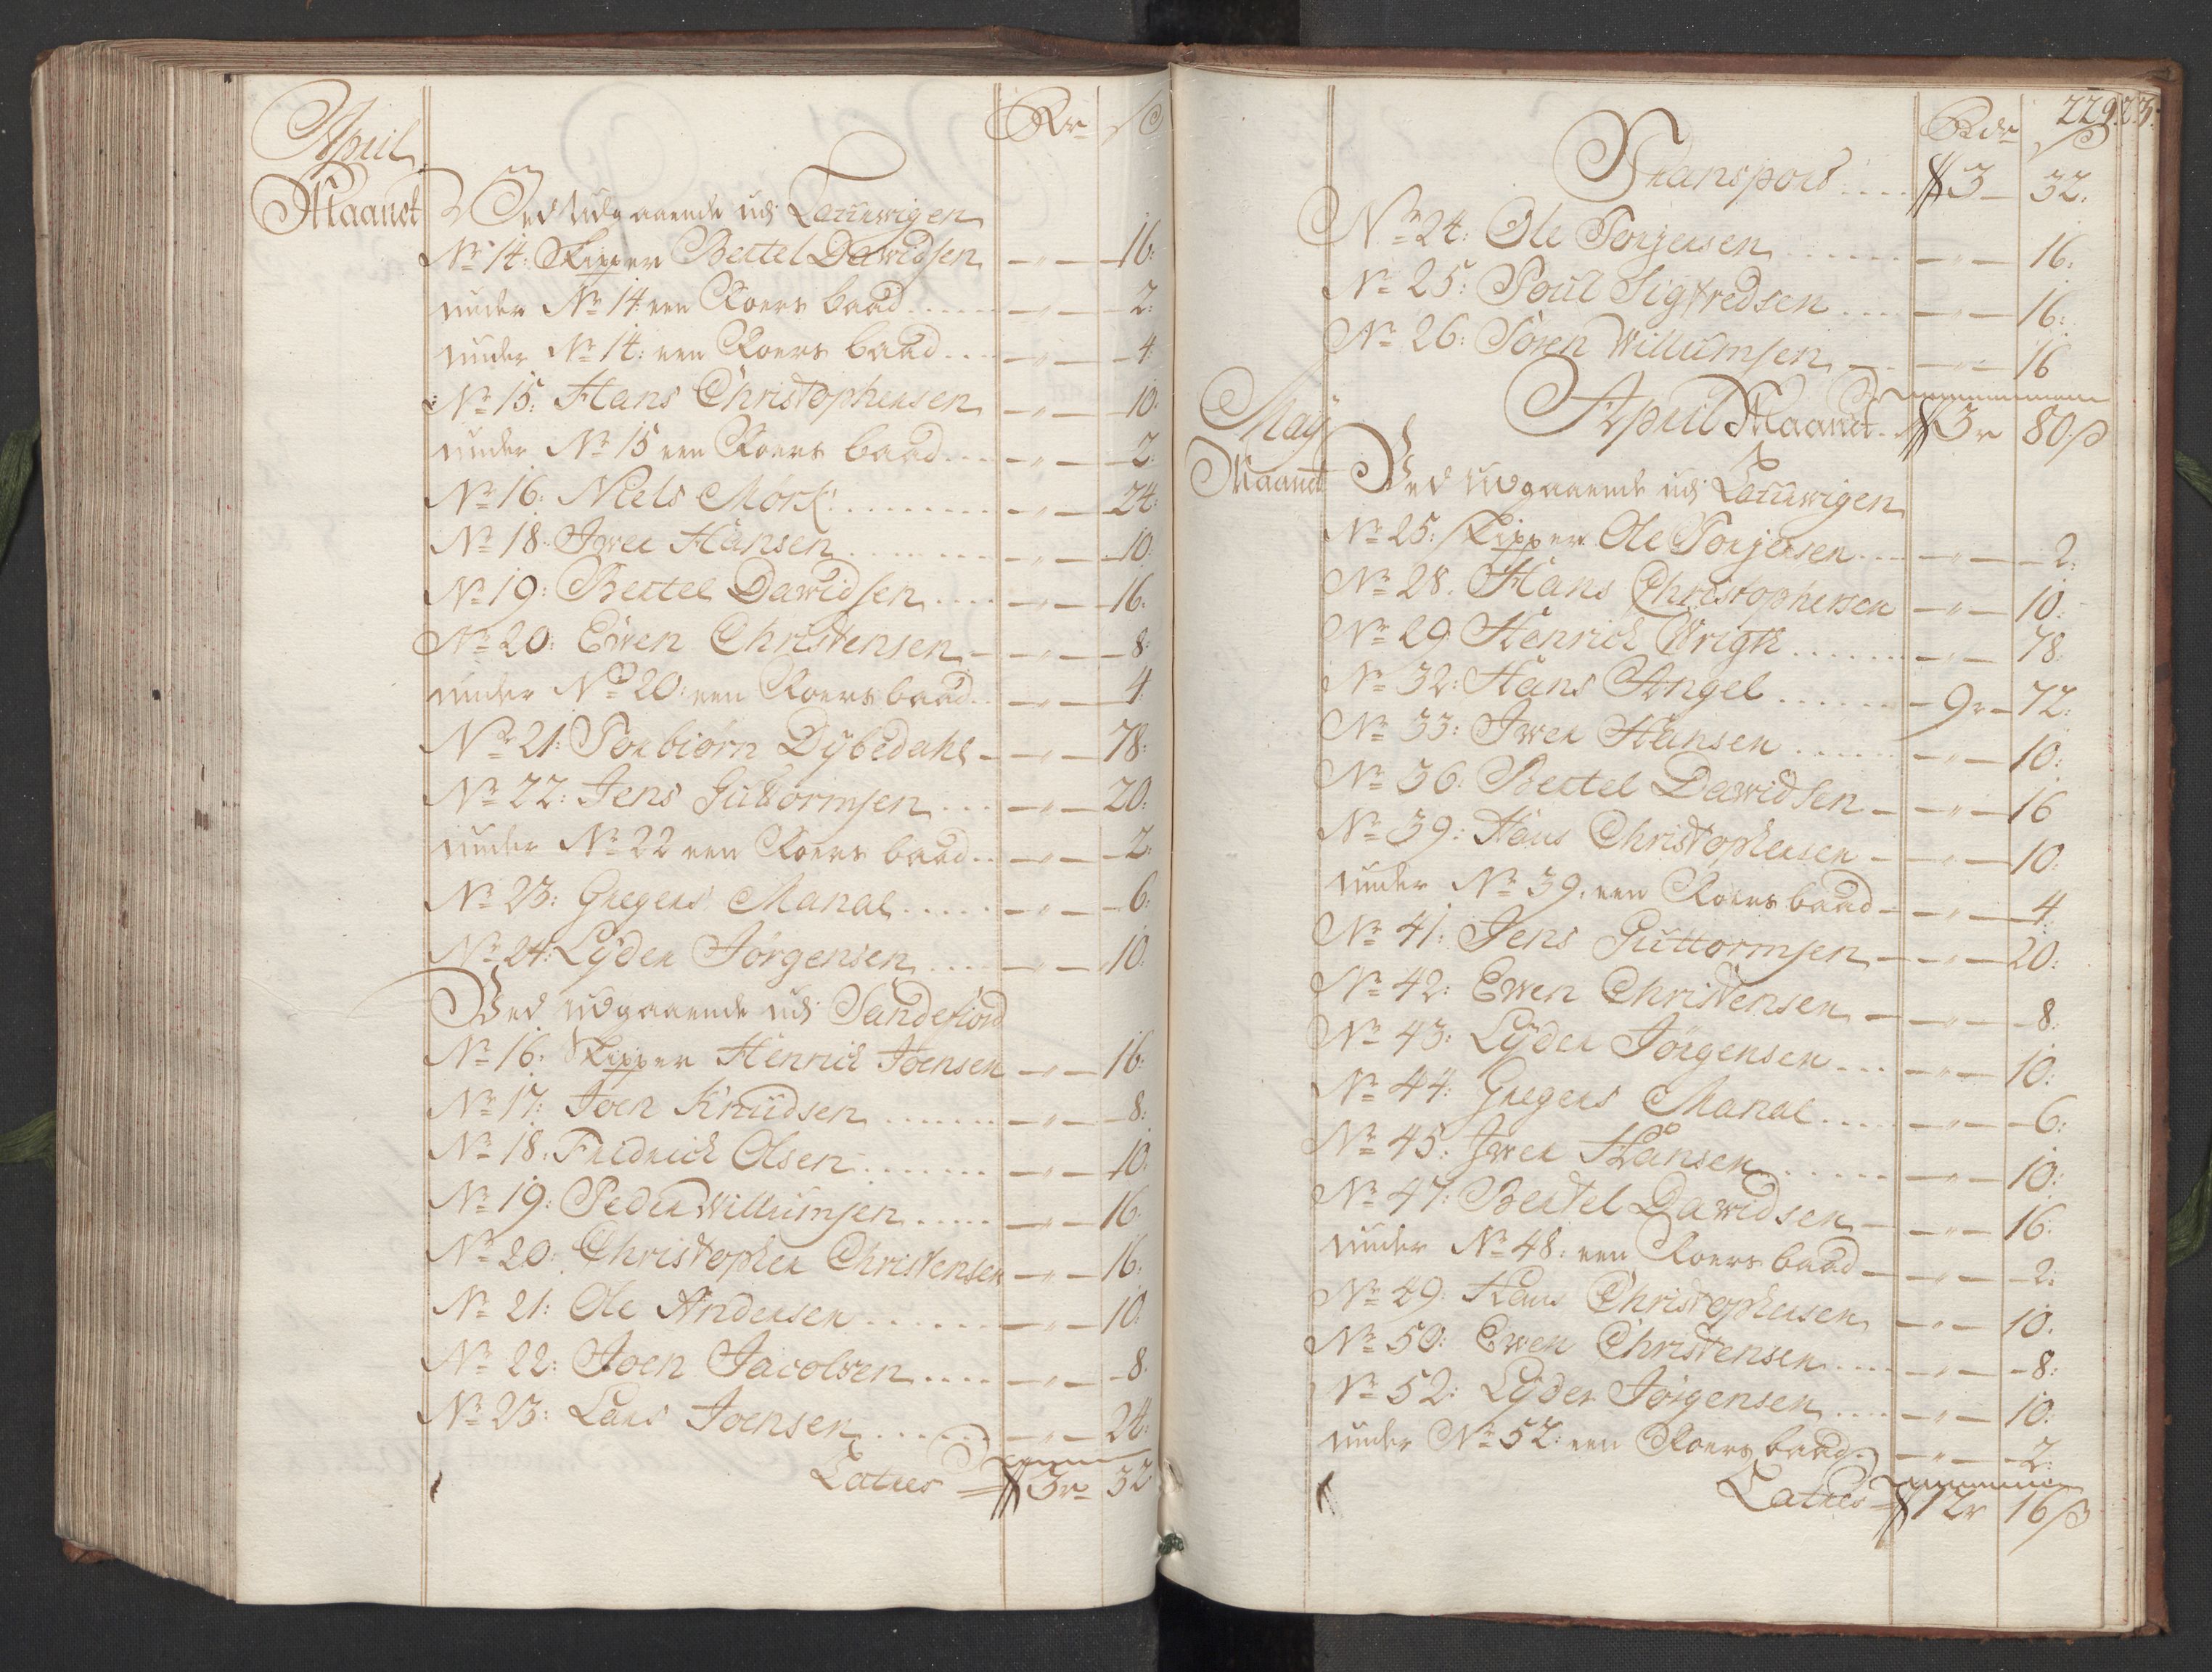 April Rdr ß
Maanet Ved Udgaaende udi Laurwigen
No 14: Skipper Bertel Dawidsen - " - 16:
under No 14 een Roers baad - " - 2:
under No 14: een Roers baad - " - 4
No 15: Hans Christophersen - " - 10:
under No 15 een Roers baad - " - 2:
No 16: Niels Mørk - " - 24:
No 18: Iwer Hansen - " - 10:
No 19: Bertel Dawidsen - " - 16.
No 20: Ewen Christensen - " - 8:
under No 20: een Roers baad - " - 4
No 21: Torbiørn Dybedahl - " - 78:
No 22: Jens Guttormsen - " - 20:
under No 22 een Roers baad - " - 2:
No 23: Gregers Manal - " - 6:
No 24: Lyder Jørgensen - " - 10:
Ved udgaaende udi Sandefiord
No 16: Skipper Henrich Joensen - " - 16:
No 17: Joen Knudsen - " - 8:
No 18: Fridrich Olsen - " - 10:
No 19: Peder Willumsen - " - 16
No 20: Christopher Christensen - " - 16:
No 21: Ole Andersen - " - 10:
No 22: Joen Jacobsen - " - 8:
No 23: Lars Joensen - " - 24:
Lateris 3r 32
229 23:
Rdr ß
Transport 3 - 32:
No 24: Ole Torjersen - " - 16:
No 25: Poul Sigfredsen - " - 16:
No 26: Søren Willumsen - " - 16
April Maanet 3r 80 ß
May
Maanet Ved udgaaende udi Laurwigen
No 25: Skipper Ole Torjersen - " - 2:
No 28. Hans Christophersen - " - 10:
No 29 Henrich Wrigh - " - 78.
No 32: Hans Angel - 9r - 72:
No 33: Iwer Hansen - " - 10:
No 36: Bertel Dawidsen - " - 16
No 39: Hans Christophersen - " - 10:
under No 39: een Roers baad - " - 4:
No 41: Jens Guttormsen - " - 20:
No 42: Ewen Christensen - " - 8:
No 43: Lyder Jørgensen - " - 10:
No 44: Gregers Manal - " - 6:
No 45: Iwer Hansen - " - 10:
No 47: Bertel Dawidsen - " - 16:
under No 48: een Roers baad - " - 2:
No 49: Hans Christophersen - " - 10:
No 50: Ewen Christensen - " - 8:
No 52: Lyder Jørgensen - " - 10:
under No 52: een Roers baad - " - 2:
Lateris 12r 16 ß